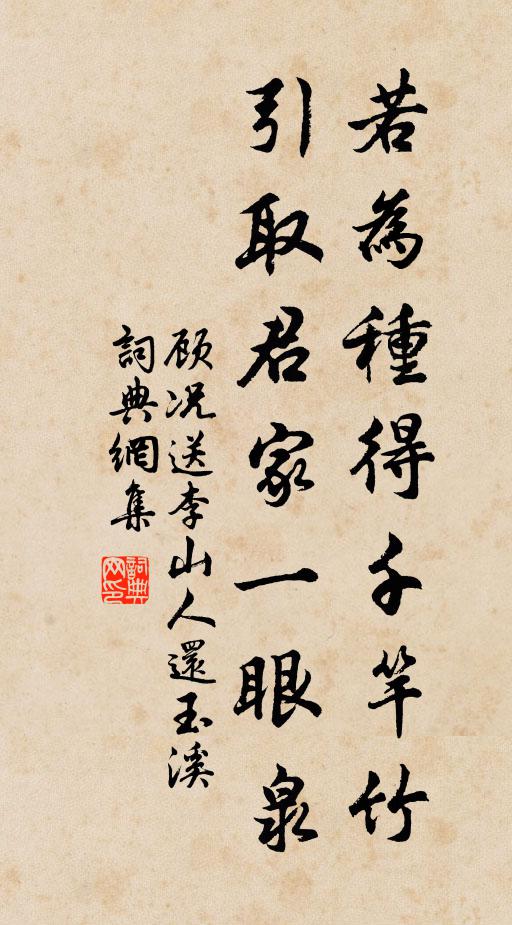 若為種得千竿竹
引取君家一眼泉
顾况送李山人還玉溪
詞典網集
詞典
网印